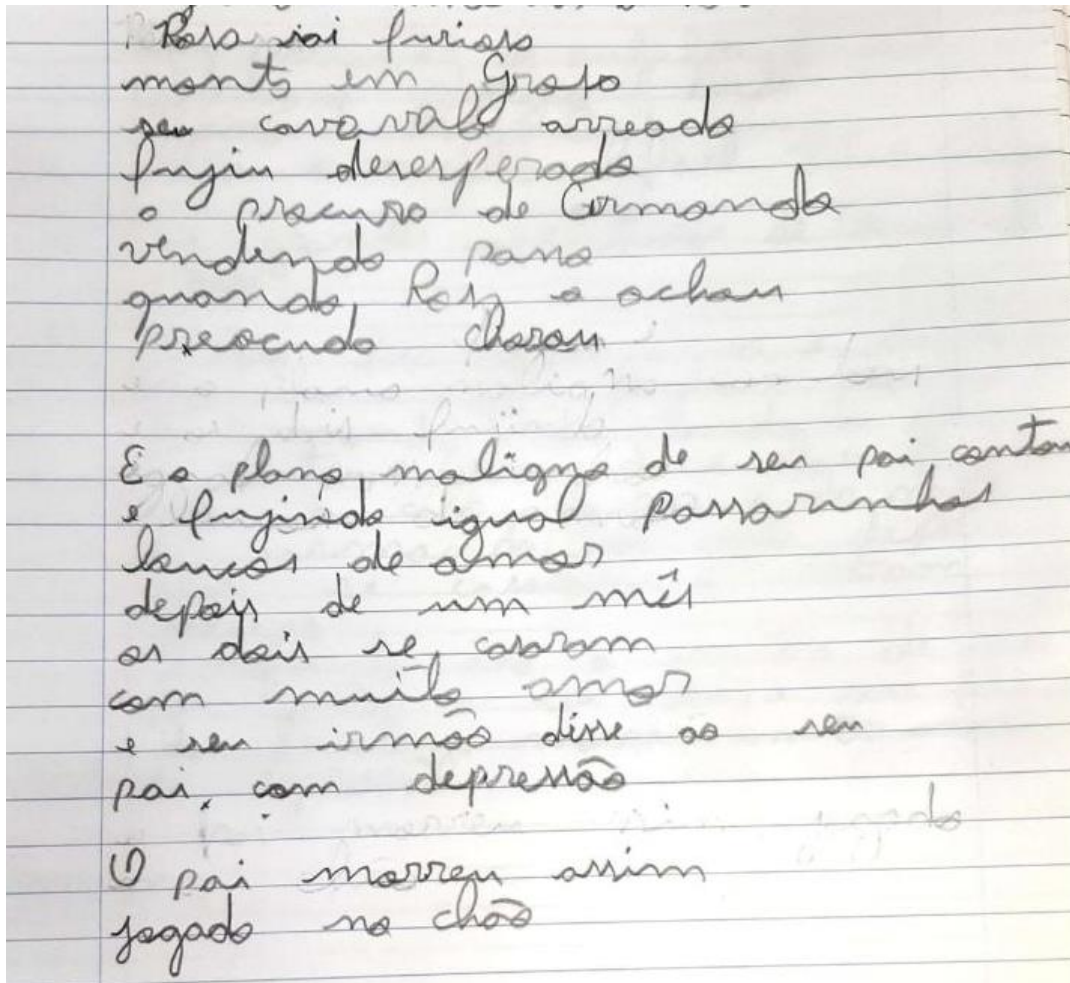 Rosa sai furiosa
monta em Grafo
seu cavavalo arreado
fujiu desesperada
a procura de Armando
vendendo pano
quando Rosa o achou
preocudo chorou
E o plano maligno de seu pai contou
e fujindo igual passarinhos
loucos de amor
depois de um mês
os dois se casaram
com muito amor
e seu irmão disse ao seu
pai, com depressão
O pai morreu assim
jogado no chão